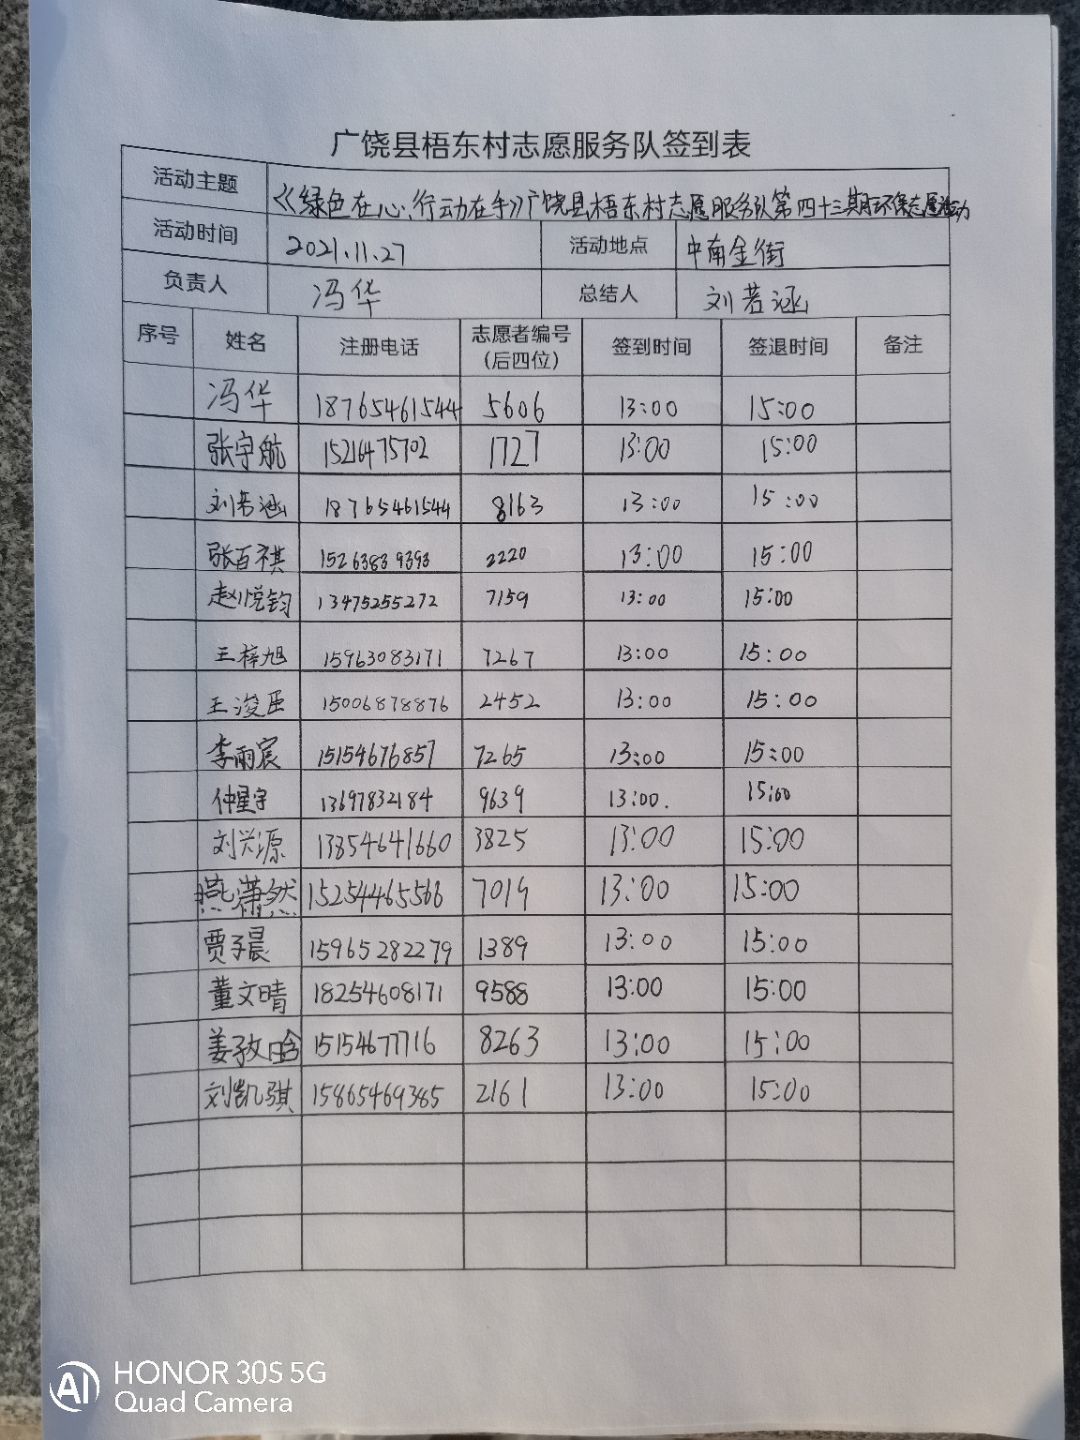 广饶县梧东村志愿服务队签到表
活动主题 《绿色在心,行动在手》广饶县梧东村志愿服务队第四十三期环保志愿活动
活动时间 2021.11.27 活动地点 中南金街
负责人 冯华 总结人 刘若涵
序号 姓名 注册电话 志愿者编号(后四位) 签到时间 签退时间 备注
冯华 18765461544 5606 13:00 15:00
张宇航 15216475702 1727 13:00 15:00
刘若涵 18765461544 8163 13:00 15:00
张百祺 15263839393 2220 13:00 15:00
赵悦钧 13475255272 7159 13:00 15:00
王梓旭 15963083171 7267 13:00 15:00
王浚 15006878876 2452 13:00 15:00
李雨宸 15154676857 7265 13:00 15:00
仲星宇 13697832184 9639 13:00. 15:00
刘兴源 13854641660 3825 13:00 15:00
燕潇然 15254465566 7019 13:00 15:00
贾子晨 15965282279 1389 13:00 15:00
董文晴 18254608171 9588 13:00 15:00
姜孜晗 15154677716 8263 13:00 15:00
刘凯骐 15865469385 2161 13:00 15:00
AI HONOR 30S 5G
Quad Camera